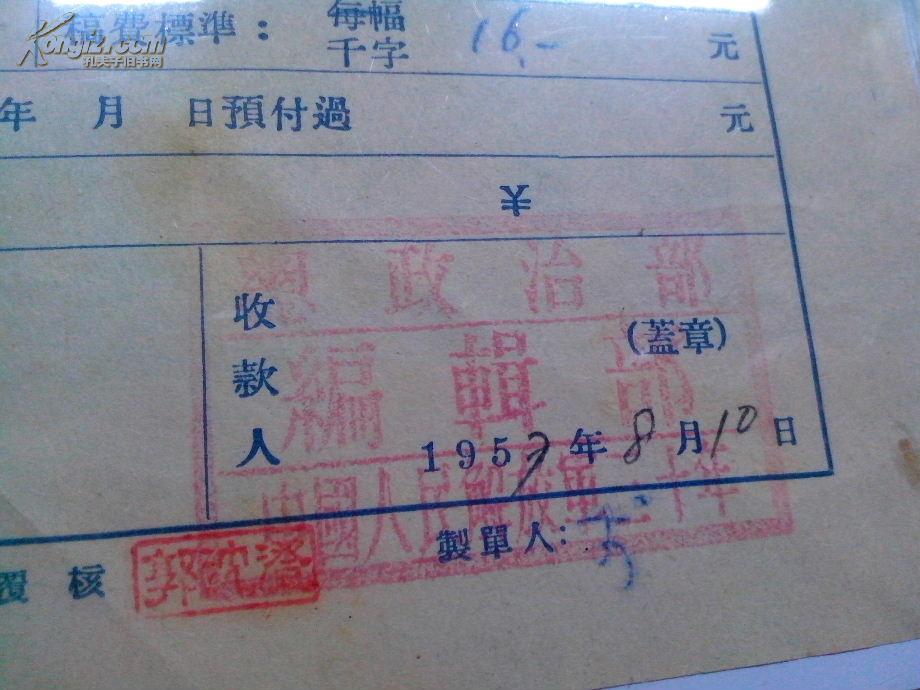 Kongfz.com
孔夫子旧书网
稿費標準：每幅千字 16.- 元
年 月 日預付過 元
¥
總政治部
收款人
(蓋章)
編輯部
1957年8月10日
中國人民解放軍三十年
製單人：
覆核
郭沈澄